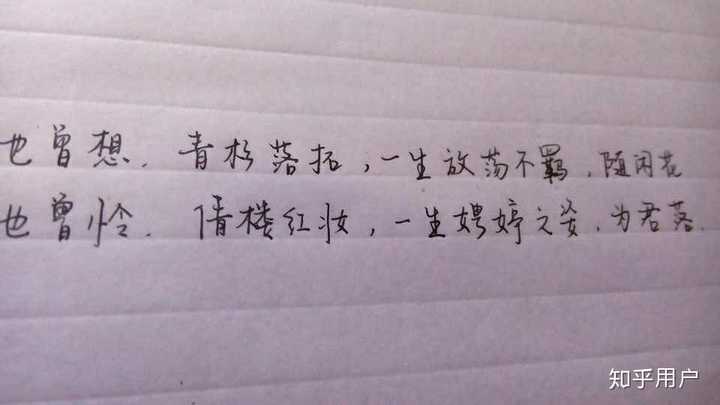 也曾想.青衫落拓,一生放荡不羁.随闲花
也曾怜.倩楼红妆,一生娉婷之姿.为君落.
知乎用户